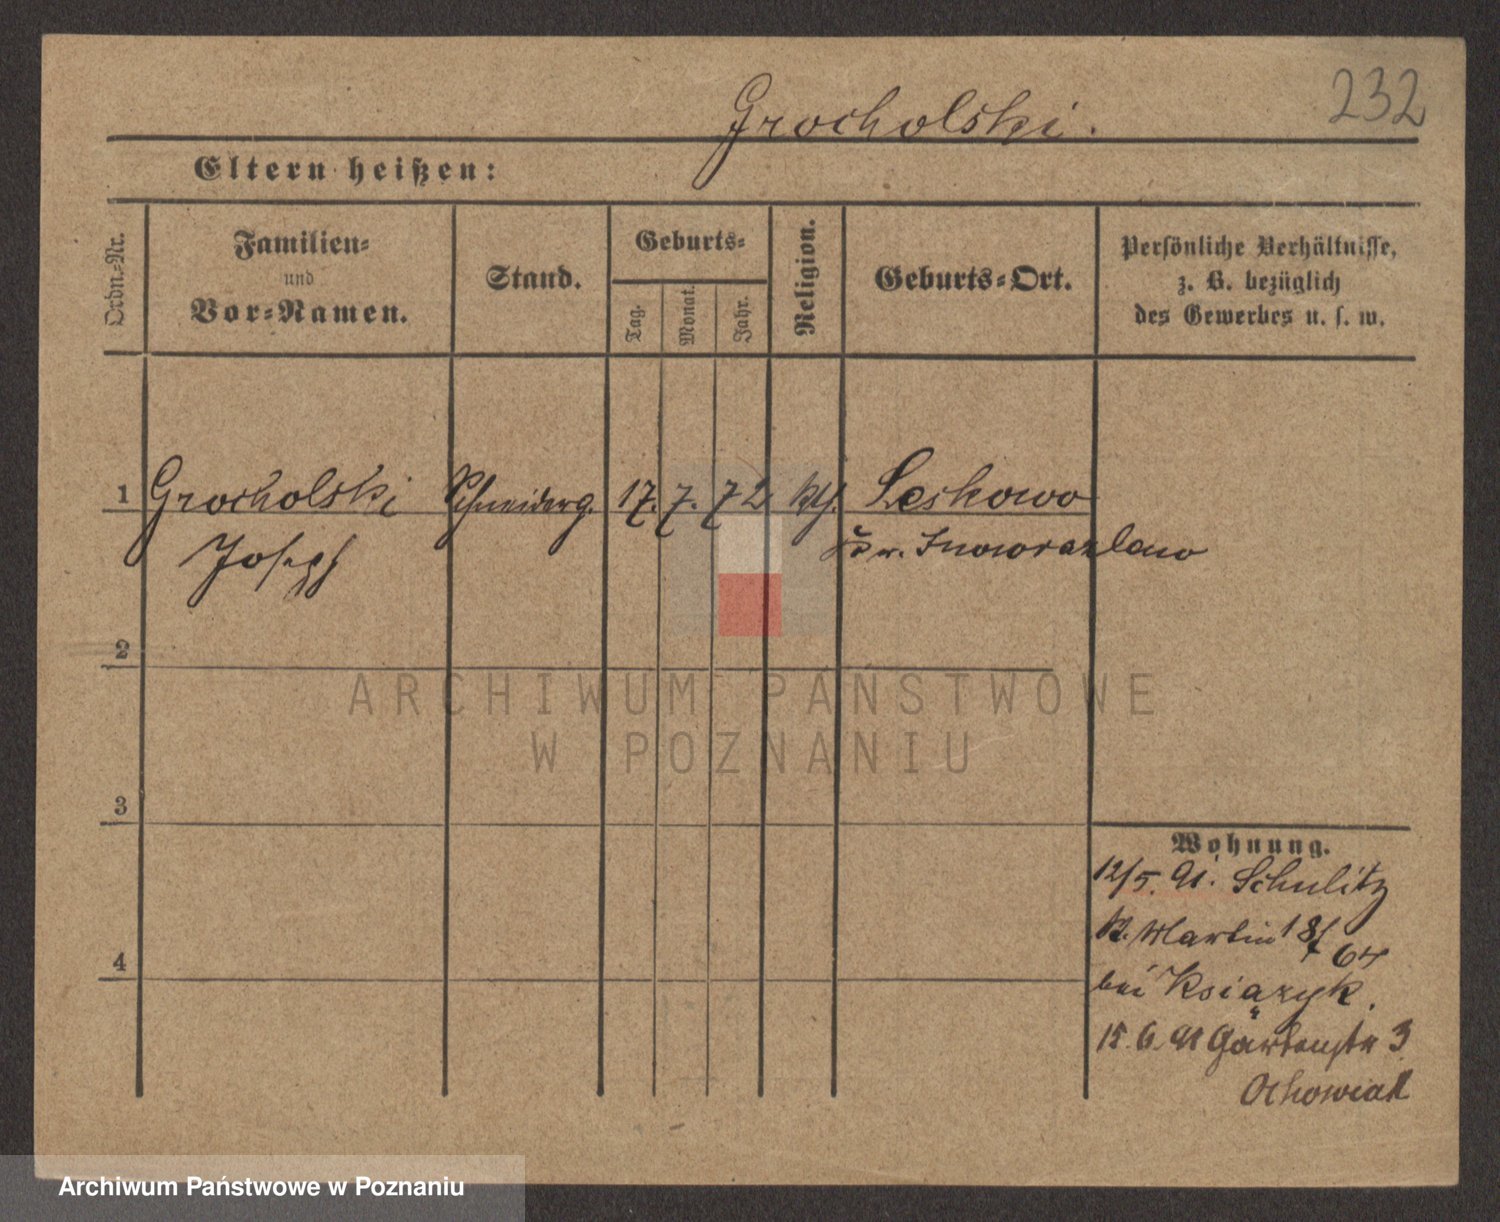 232
Grocholski.
Eltern heißen:
Ordn.=Nr.
Familien=
und
Vor=Namen.
Stand.
Geburts=
Tag.
Monat.
Jahr.
Religion.
Geburts=Ort.
Persönliche Verhältnisse,
z. B. bezüglich
des Gewerbes u. s. w.
1 Grocholski Schneiderg. 17. 7. 72 kth. Leskowo
Joseph Kr. Inowrazlaw
2
3
4
Wohnung.
12/5. 91. Schulitz
St. Martin 18/
64
bei Książyk.
15. 6. 91 Gartenstr 3
Ochowiak
ARCHIWUM PAŃSTWOWE
W POZNANIU
Archiwum Państwowe w Poznaniu